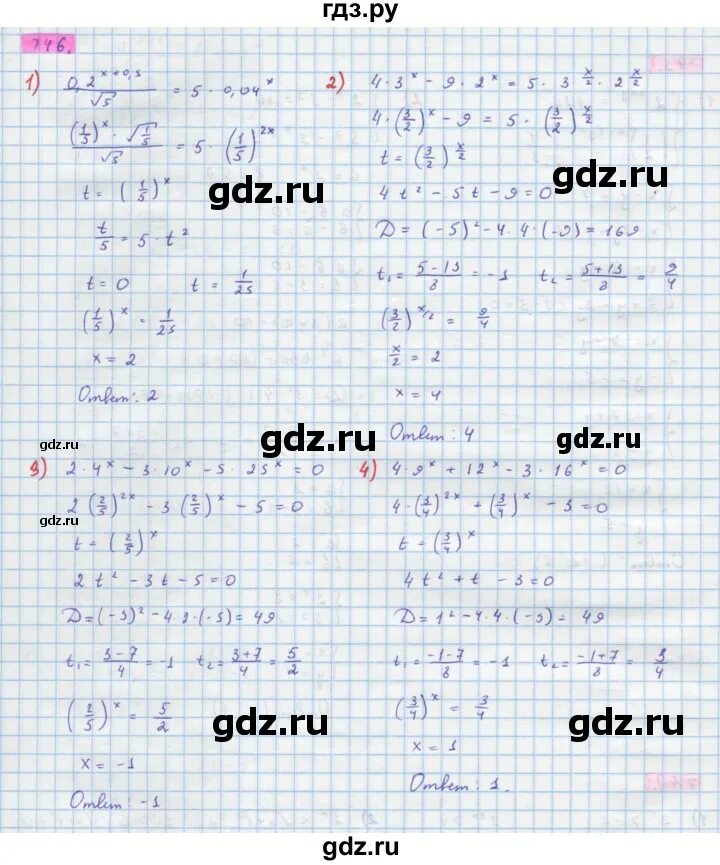 гдз.ру
746.
1) 0,2^(x+0,5)/√5 = 5 · 0,04^x
(1/5)^x · √(1/5)/√5 = 5 · (1/5)^(2x)
t = (1/5)^x
gdz.ru
t/5 = 5 · t²
t = 0 t = 1/25
(1/5)^x = 1/25
x = 2
Ответ: 2
2) 4 · 3^x − 9 · 2^x = 5 · 3^(x/2) · 2^(x/2)
4 · (3/2)^x − 9 = 5 · (3/2)^(x/2)
t = (3/2)^(x/2)
gdz.ru
4t² − 5t − 9 = 0
D = (−5)² − 4·4·(−9) = 169
t₁ = (5−13)/8 = −1 t₂ = (5+13)/8 = 9/4
(3/2)^(x/2) = 9/4
x/2 = 2
x = 4
Ответ: 4
gdz.ru
gdz.ru
gdz.ru
3) 2·4^x − 3·10^x − 5·25^x = 0
2(2/5)^(2x) − 3(2/5)^x − 5 = 0
gdz.ru
t = (2/5)^x
2t² − 3t − 5 = 0
D = (−3)² − 4·2·(−5) = 49
t₁ = (3−7)/4 = −1 t₂ = (3+7)/4 = 5/2
(2/5)^x = 5/2
gdz.ru
x = −1
Ответ: −1
4) 4·9^x + 12^x − 3·16^x = 0
4·(3/4)^(2x) + (3/4)^x − 3 = 0
t = (3/4)^x
4t² + t − 3 = 0
D = 1² − 4·4·(−3) = 49
t₁ = (−1−7)/8 = −1 t₂ = (−1+7)/8 = 3/4
(3/4)^x = 3/4
gdz.ru
x = 1
Ответ: 1.
gdz.ru